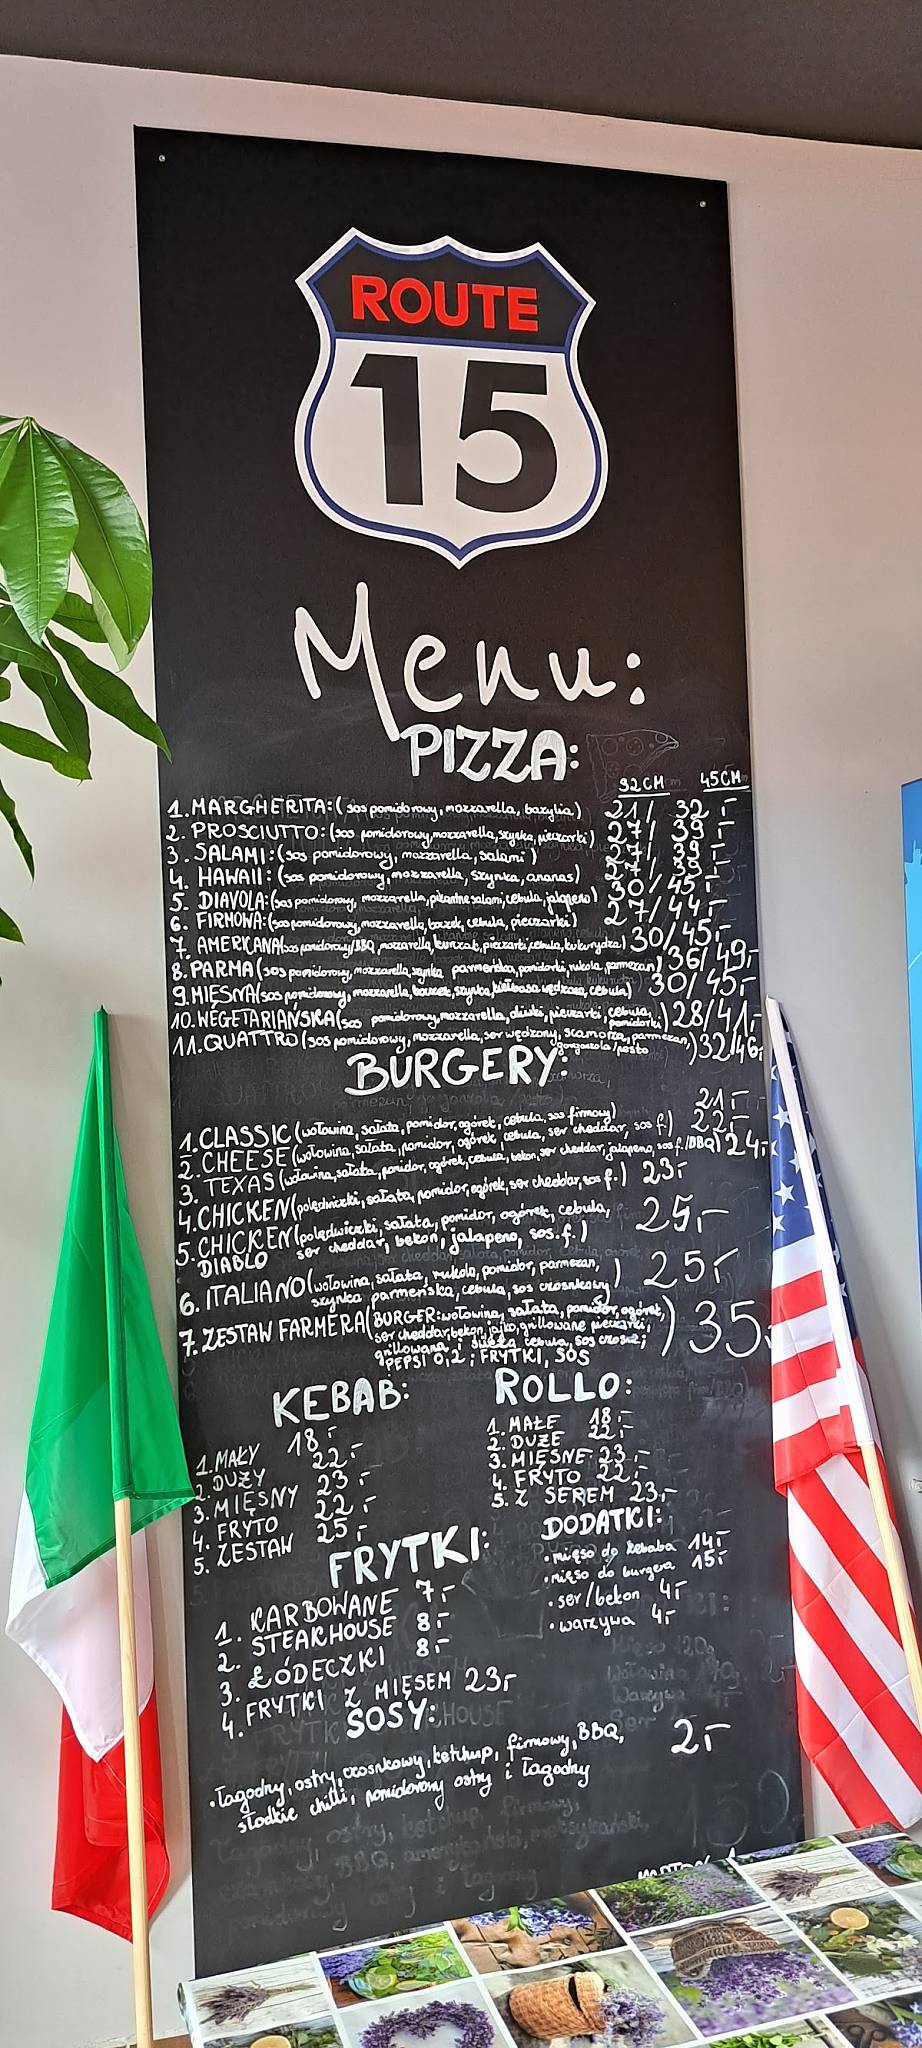 ROUTE
15
Menu:
PIZZA:
32CM 45CM
1. MARGHERITA: (sos pomidorowy, mozzarella, bazylia) 21/ 32,-
2. PROSCIUTTO: (sos pomidorowy, mozzarella, szynka, pieczarki) 27/ 39,-
3. SALAMI: (sos pomidorowy, mozzarella, salami) 27/ 39,-
4. HAWAII: (sos pomidorowy, mozzarella, szynka, ananas) 27/ 39,-
5. DIAVOLA: (sos pomidorowy, mozzarella, pikantne salami, cebula, jalapeno) 30/45,-
6. FIRMOWA: (sos pomidorowy, mozzarella, boczek, cebula, pieczarki) 27/44,-
7. AMERICANA (sos pomidorowy/BBQ, mozzarella, kurczak, pieczarki, cebula, kukurydza) 30/45,-
8. PARMA (sos pomidorowy, mozzarella, szynka parmeńska, pomidorki, rukola, parmezan) 36/49,-
9. MIĘSNA (sos pomidorowy, mozzarella, boczek, szynka, kiełbasa wędzona, cebula) 30/45,-
10. WEGETARIAŃSKA (sos pomidorowy, mozzarella, oliwki, pieczarki, cebula, pomidorki) 28/41,-
11. QUATTRO (sos pomidorowy, mozzarella, ser wędzony, scamorza, parmezan, gorgonzola/pesto) 32/46,-
BURGERY:
1. CLASSIC (wołowina, sałata, pomidor, ogórek, cebula, sos firmowy) 21,-
2. CHEESE (wołowina, sałata, pomidor, ogórek, cebula, ser cheddar, sos f.) 22,-
3. TEXAS (wołowina, sałata, pomidor, ogórek, cebula, bekon, ser cheddar, jalapeno, sos f./BBQ) 24,-
4. CHICKEN (polędwiczki, sałata, pomidor, ogórek, ser cheddar, sos f.) 23,-
5. CHICKEN (polędwiczki, sałata, pomidor, ogórek, cebula, 25,-
DIABLO ser cheddar, bekon, jalapeno, sos.f.)
6. ITALIANO (wołowina, sałata, rukola, pomidor, parmezan, 25,-
szynka parmeńska, cebula, sos czosnkowy)
7. ZESTAW FARMERA (BURGER: wołowina, sałata, pomidor, ogórek, 35,-
ser cheddar, bekon, jajko, grillowane pieczarki,
grillowana i cebula, sos
PEPSI 0,2; FRYTKI, SOS)
KEBAB:
1. MAŁY 18,-
2. DUŻY 22,-
3. MIĘSNY 23,-
4. FRYTO 22,-
5. ZESTAW 25,-
ROLLO:
1. MAŁE 18,-
2. DUŻE 22,-
3. MIĘSNE 23,-
4. FRYTO 22,-
5. Z SEREM 23,-
DODATKI:
• mięso do kebaba 14,-
• mięso do burgera 15,-
• ser/bekon 4,-
• warzywa 4,-
FRYTKI:
1. KARBOWANE 7,-
2. STEAKHOUSE 8,-
3. ŁÓDECZKI 8,-
4. FRYTKI Z MIĘSEM 23,-
SOSY:
• łagodny, ostry, czosnkowy, ketchup, firmowy, BBQ, 2,-
słodkie chilli, pomidorowy ostry i łagodny